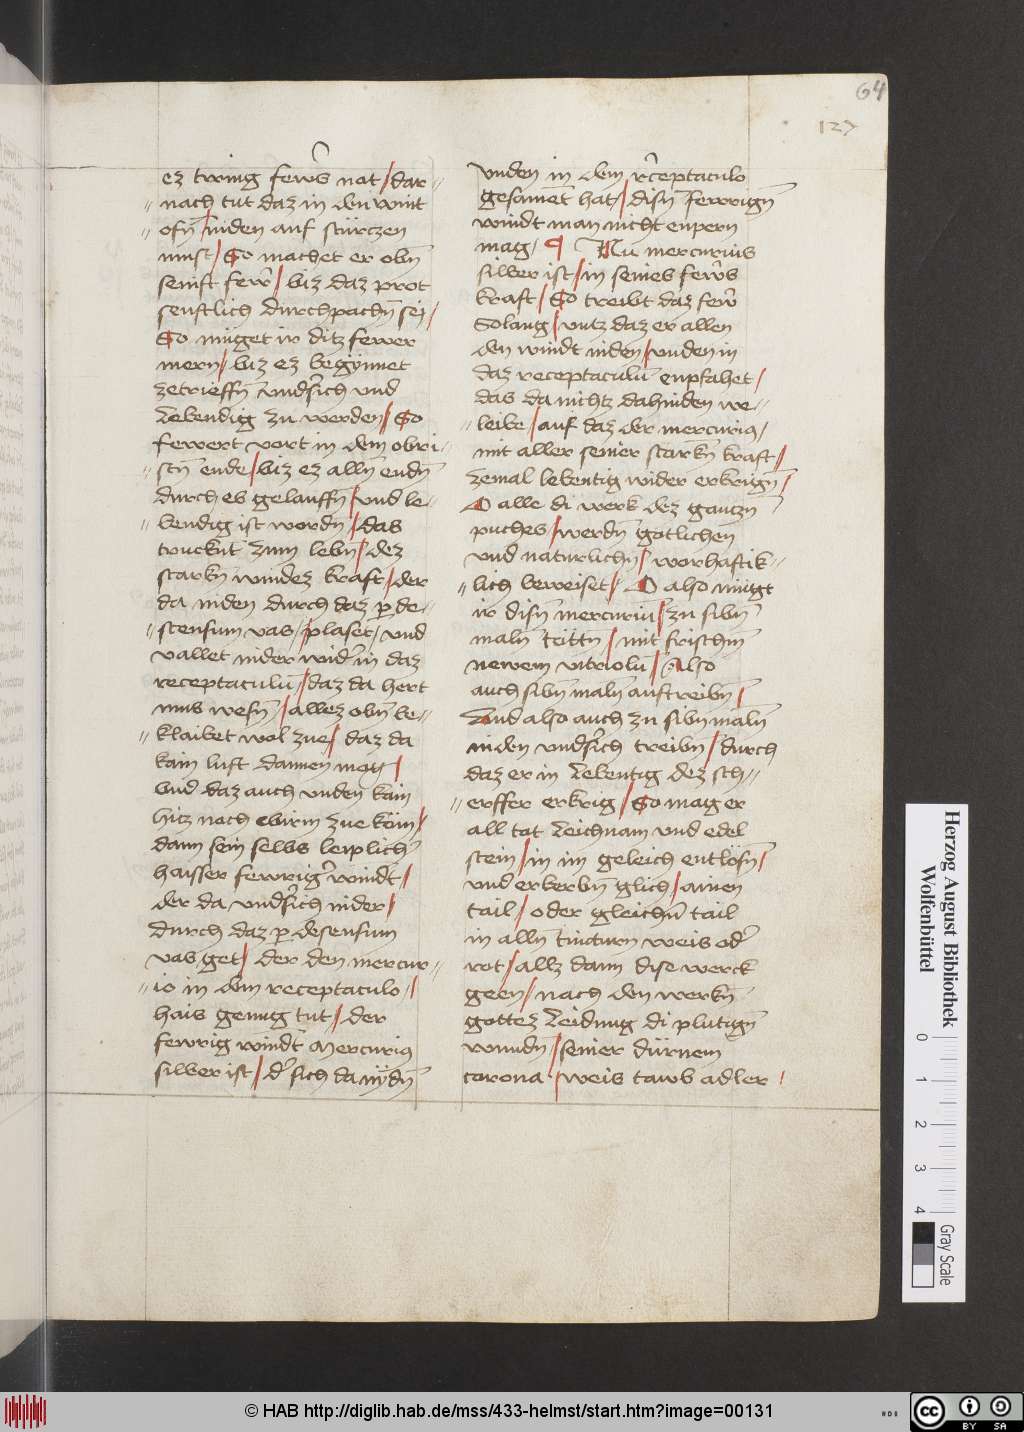 64
127
ez twing fewrs not / dar=
= nach tut daz in den wint
= ofn niden auf stürczen
must / So machet er obn
senft fewr / biz daz prot
senftlich durchpachn sei /
So müget ir ditz fewer
mern / biz ez begynnet
zetrieffn vndsich vnd
Lebendig zu werden / So
fewert vort in dem obri=
= stn ende / biz ez alln endn
durch es gelauffn / vnd le=
= bendig ist wordn / das
trucknt zum lebn / dez
starkn windez kraft / der
da niden durch daz p de=
= scensum vas / plaset / vnd
vallet nider wider in daz
receptaculum / daz da hert
mus wesn / allez obn be=
= klaibet wol zue / daz da
kain luft dannen mag /
vnd daz auch vnden kain
hicz noch wirm zue köm /
dann sein selbs leiplich
haisser fewriger windt /
der da vndsich nider /
durch daz p desensum
vas get / der den mercur=
= io in dem receptaculo /
hais genug tut / der
fewrig windt Mercurius
silber ist / der sich da nydn
vnden in dem receptaculo
gesament hat / disn fewrign
windt man nicht enpern
mag / ¶ Nu mercurius
silber ist / in seines fewrs
kraft / So treibt daz fewr
Solang / vntz daz er allen
den windt niden / vnden in
daz receptaculum enpfahet /
das da nichtz dahinden we=
= leibe / auf daz der mercurius /
mit aller seiner starkn kraft /
zemal lebentig wider erkrign /
O alle di werk dez gantzn
puches / werdn gotlichen
vnd naturlichn / worhaftik=
= lich beweiset / O also mügt
ir disn mercurium / zu sibn
maln töttn / mit frischm
newem vitriolum / Also
auch sibn maln auftreibn /
Vnd also auch zu sibn maln
niden vndsich treibn / durch
daz er in Lebentig dez sch=
= erffer erkrig / So mag er
all tot Leichnam vnd edel
stein / in im geleich entlösn /
vnd erkerbn glich / ainen
tail / oder gleichn tail
in alln tincturn weis oder
rot / allz dann dise werck
geen / nach den werkn
gottez Leidung di plutign
wundn / seiner dürnem
corona / weis tawb adler /
Herzog August Bibliothek
Wolfenbüttel
0 1 2 3 4
Gray Scale
© HAB http://diglib.hab.de/mss/433-helmst/start.htm?image=00131
HAB
cc BY SA